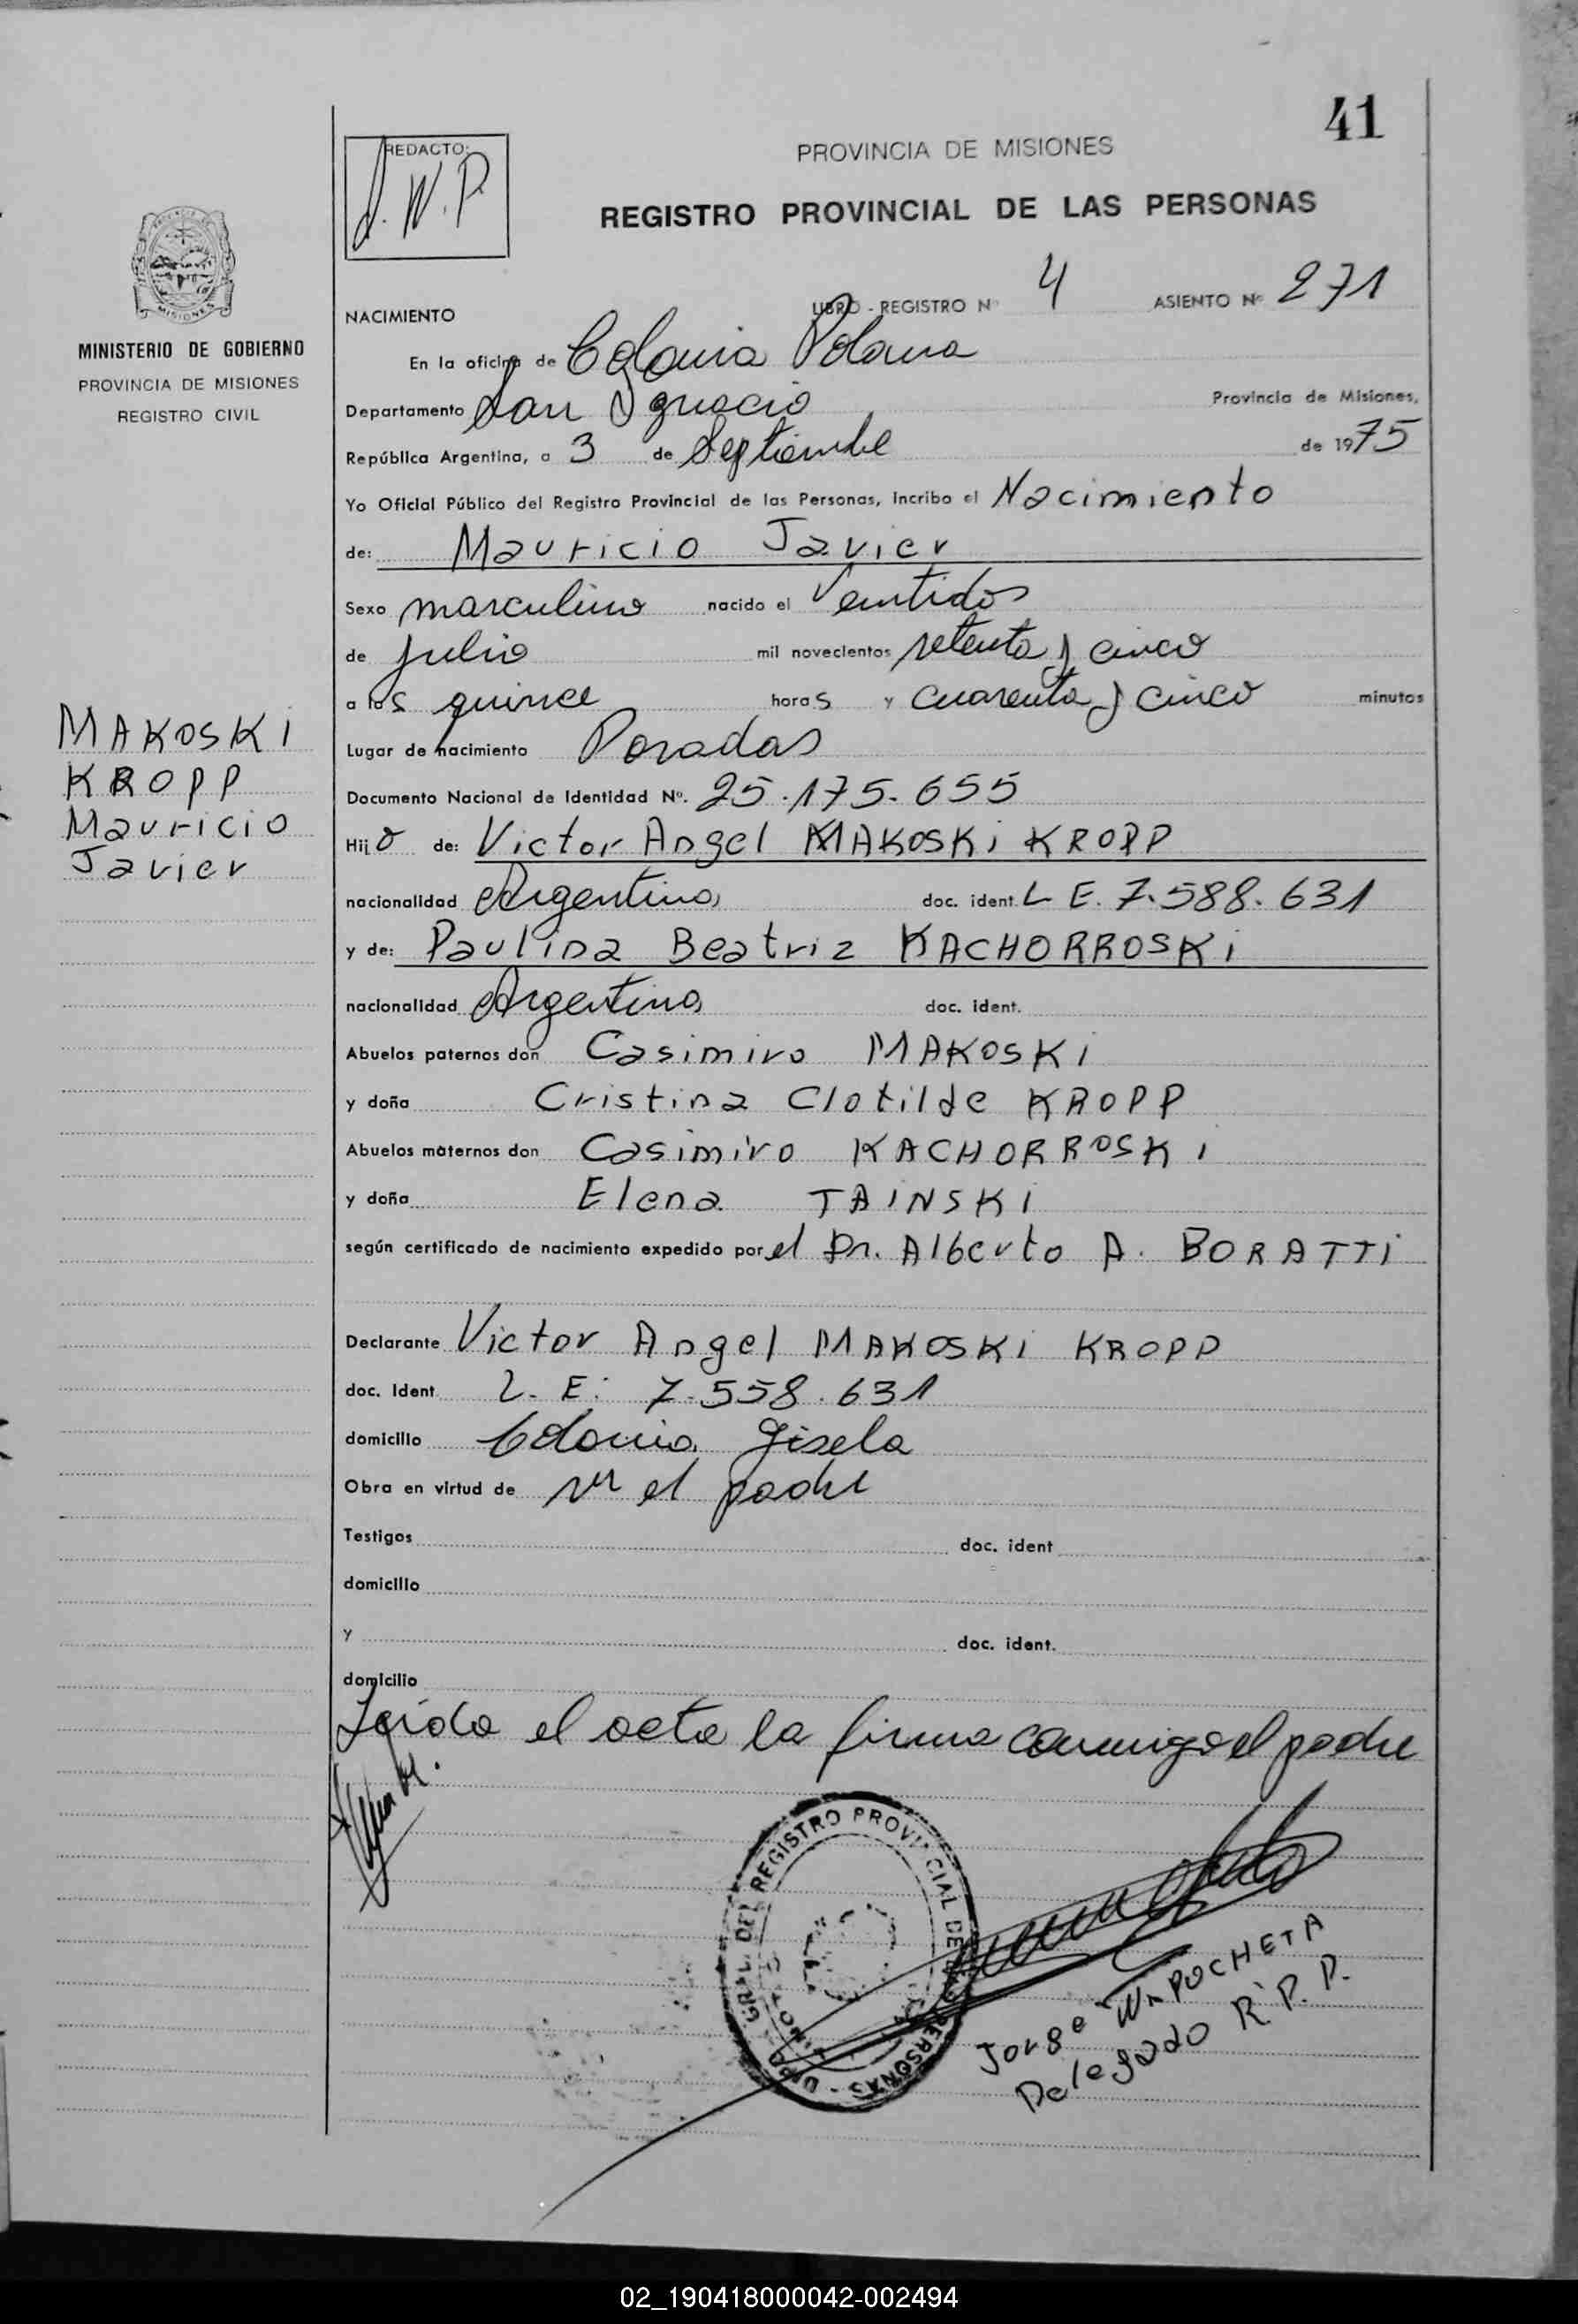 41
REDACTO:
J. W. P.
PROVINCIA DE MISIONES
REGISTRO PROVINCIAL DE LAS PERSONAS
MISIONES
MINISTERIO DE GOBIERNO
PROVINCIA DE MISIONES
REGISTRO CIVIL
NACIMIENTO LIBRO - REGISTRO Nº 4 ASIENTO Nº 271
En la oficina de Colonia Polana
Departamento San Ignacio Provincia de Misiones,
República Argentina, a 3 de Septiembre de 1975
Yo Oficial Público del Registro Provincial de las Personas, Incribo el Nacimiento
de: Mauricio Javier
Sexo masculino nacido el Veintidos
de julio mil novecientos setenta y cinco
a las quince horas y cuarenta y cinco minutos
MAKOSKI
KROPP
Mauricio
Javier
Lugar de nacimiento Posadas
Documento Nacional de Identidad Nº. 25.175.655
Hijo de: Victor Angel MAKOSKI KROPP
nacionalidad Argentina doc. ident. L E. 7.588.631
y de: Paulina Beatriz KACHORROSKI
nacionalidad Argentina doc. ident.
Abuelos paternos don Casimiro MAKOSKI
y doña Cristina Clotilde KROPP
Abuelos maternos don Casimiro KACHORROSKI
y doña Elena TAINSKI
según certificado de nacimiento expedido por el Dr. Alberto A. BORATTI
Declarante Victor Angel MAKOSKI KROPP
doc. Ident L. E: 7.558.631
domicilio Colonia Gisela
Obra en virtud de ser el padre
Testigos doc. ident
domicilio
y doc. ident.
domicilio
Leida el acta la firma conmigo el padre
GRAL. DEL REGISTRO PROVINCIAL DE LAS PERSONAS
Jorge W. POCHETA
Delegado R. P. P.
02_190418000042-002494